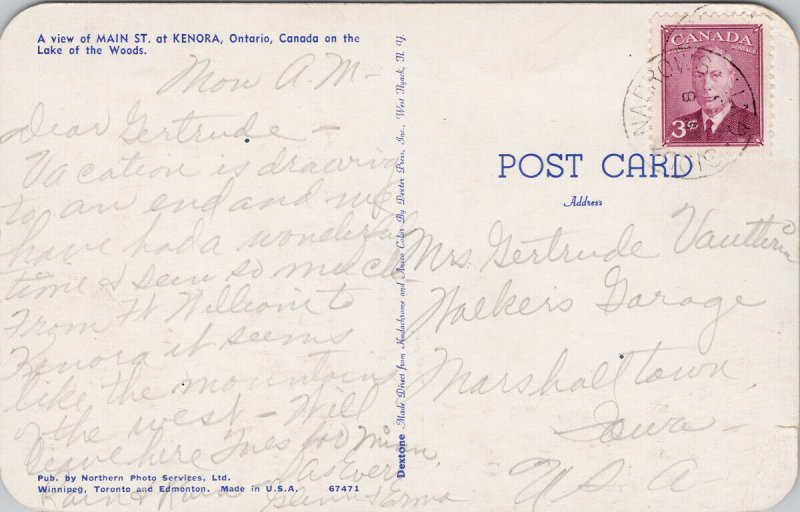 A view of MAIN ST. at KENORA, Ontario, Canada on the
Lake of the Woods.
Mon A.M-
Dear Gertrude -
Vacation is drawing
to an end and we
have had a wonderful
time & seen so much -
From Ft William to
Kenora it seems
like the mountains
of the west - Will
leave here Tues for Minn.
As Ever
Glenn & Erma
Rain & Rain
Pub. by Northern Photo Services, Ltd.
Winnipeg, Toronto and Edmonton. Made in U.S.A. 67471
Dextone Made Direct from Kodachrome and Ansco Color By Dexter Press, Inc., West Nyack, N. Y.
CANADA
POSTAGE
3¢
POST CARD
Address
Mrs. Gertrude
Walkers Garage
Marshalltown,
Iowa -
U S A